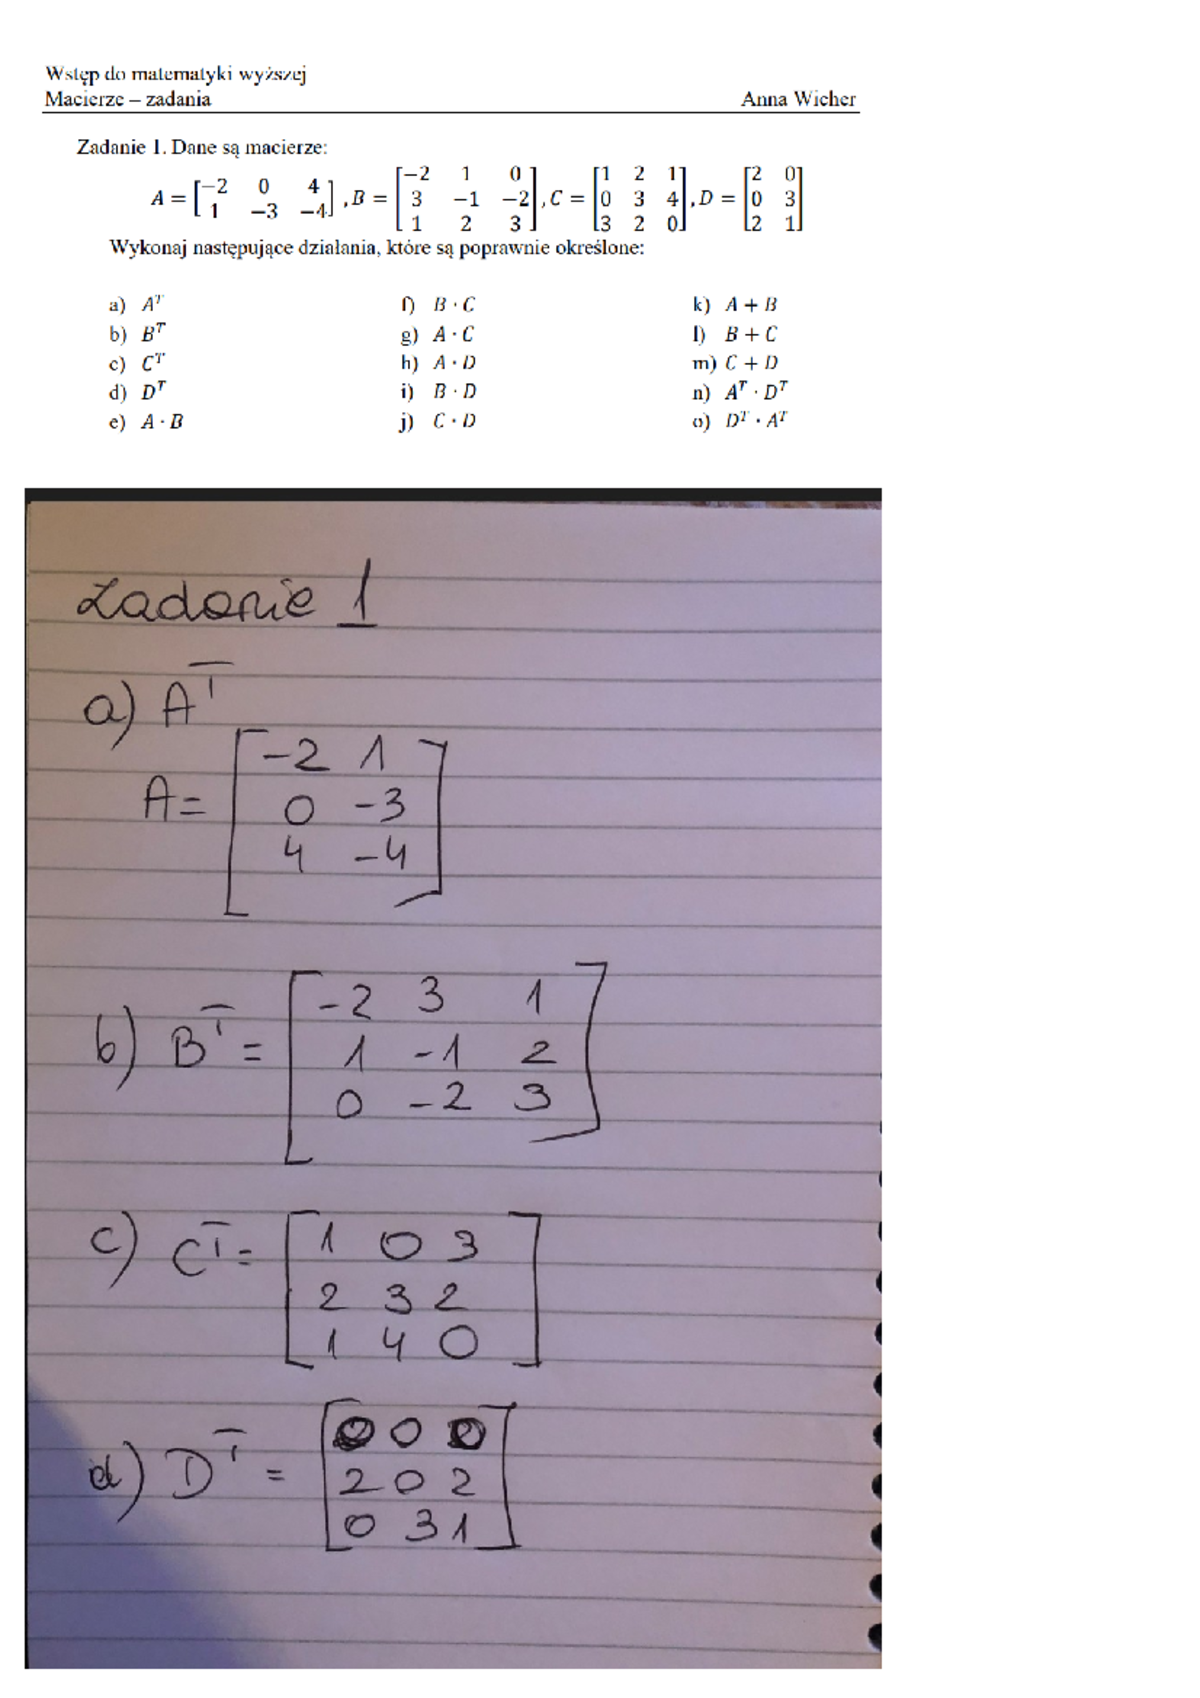 Wstęp do matematyki wyższej
Macierze – zadania Anna Wicher
Zadanie 1. Dane są macierze:
A = [−2 0 4; 1 −3 −4], B = [−2 1 0; 3 −1 −2; 1 2 3], C = [1 2 1; 0 3 4; 3 2 0], D = [2 0; 0 3; 2 1]
Wykonaj następujące działania, które są poprawnie określone:
a) A^T f) B · C k) A + B
b) B^T g) A · C l) B + C
c) C^T h) A · D m) C + D
d) D^T i) B · D n) A^T · D^T
e) A · B j) C · D o) D^T · A^T
Zadanie 1
a) A^T
A = [−2 1; 0 −3; 4 −4]
b) B^T = [−2 3 1; 1 −1 2; 0 −2 3]
c) C^T = [1 0 3; 2 3 2; 1 4 0]
d) D^T = [0; 2 0 2; 0 3 1]